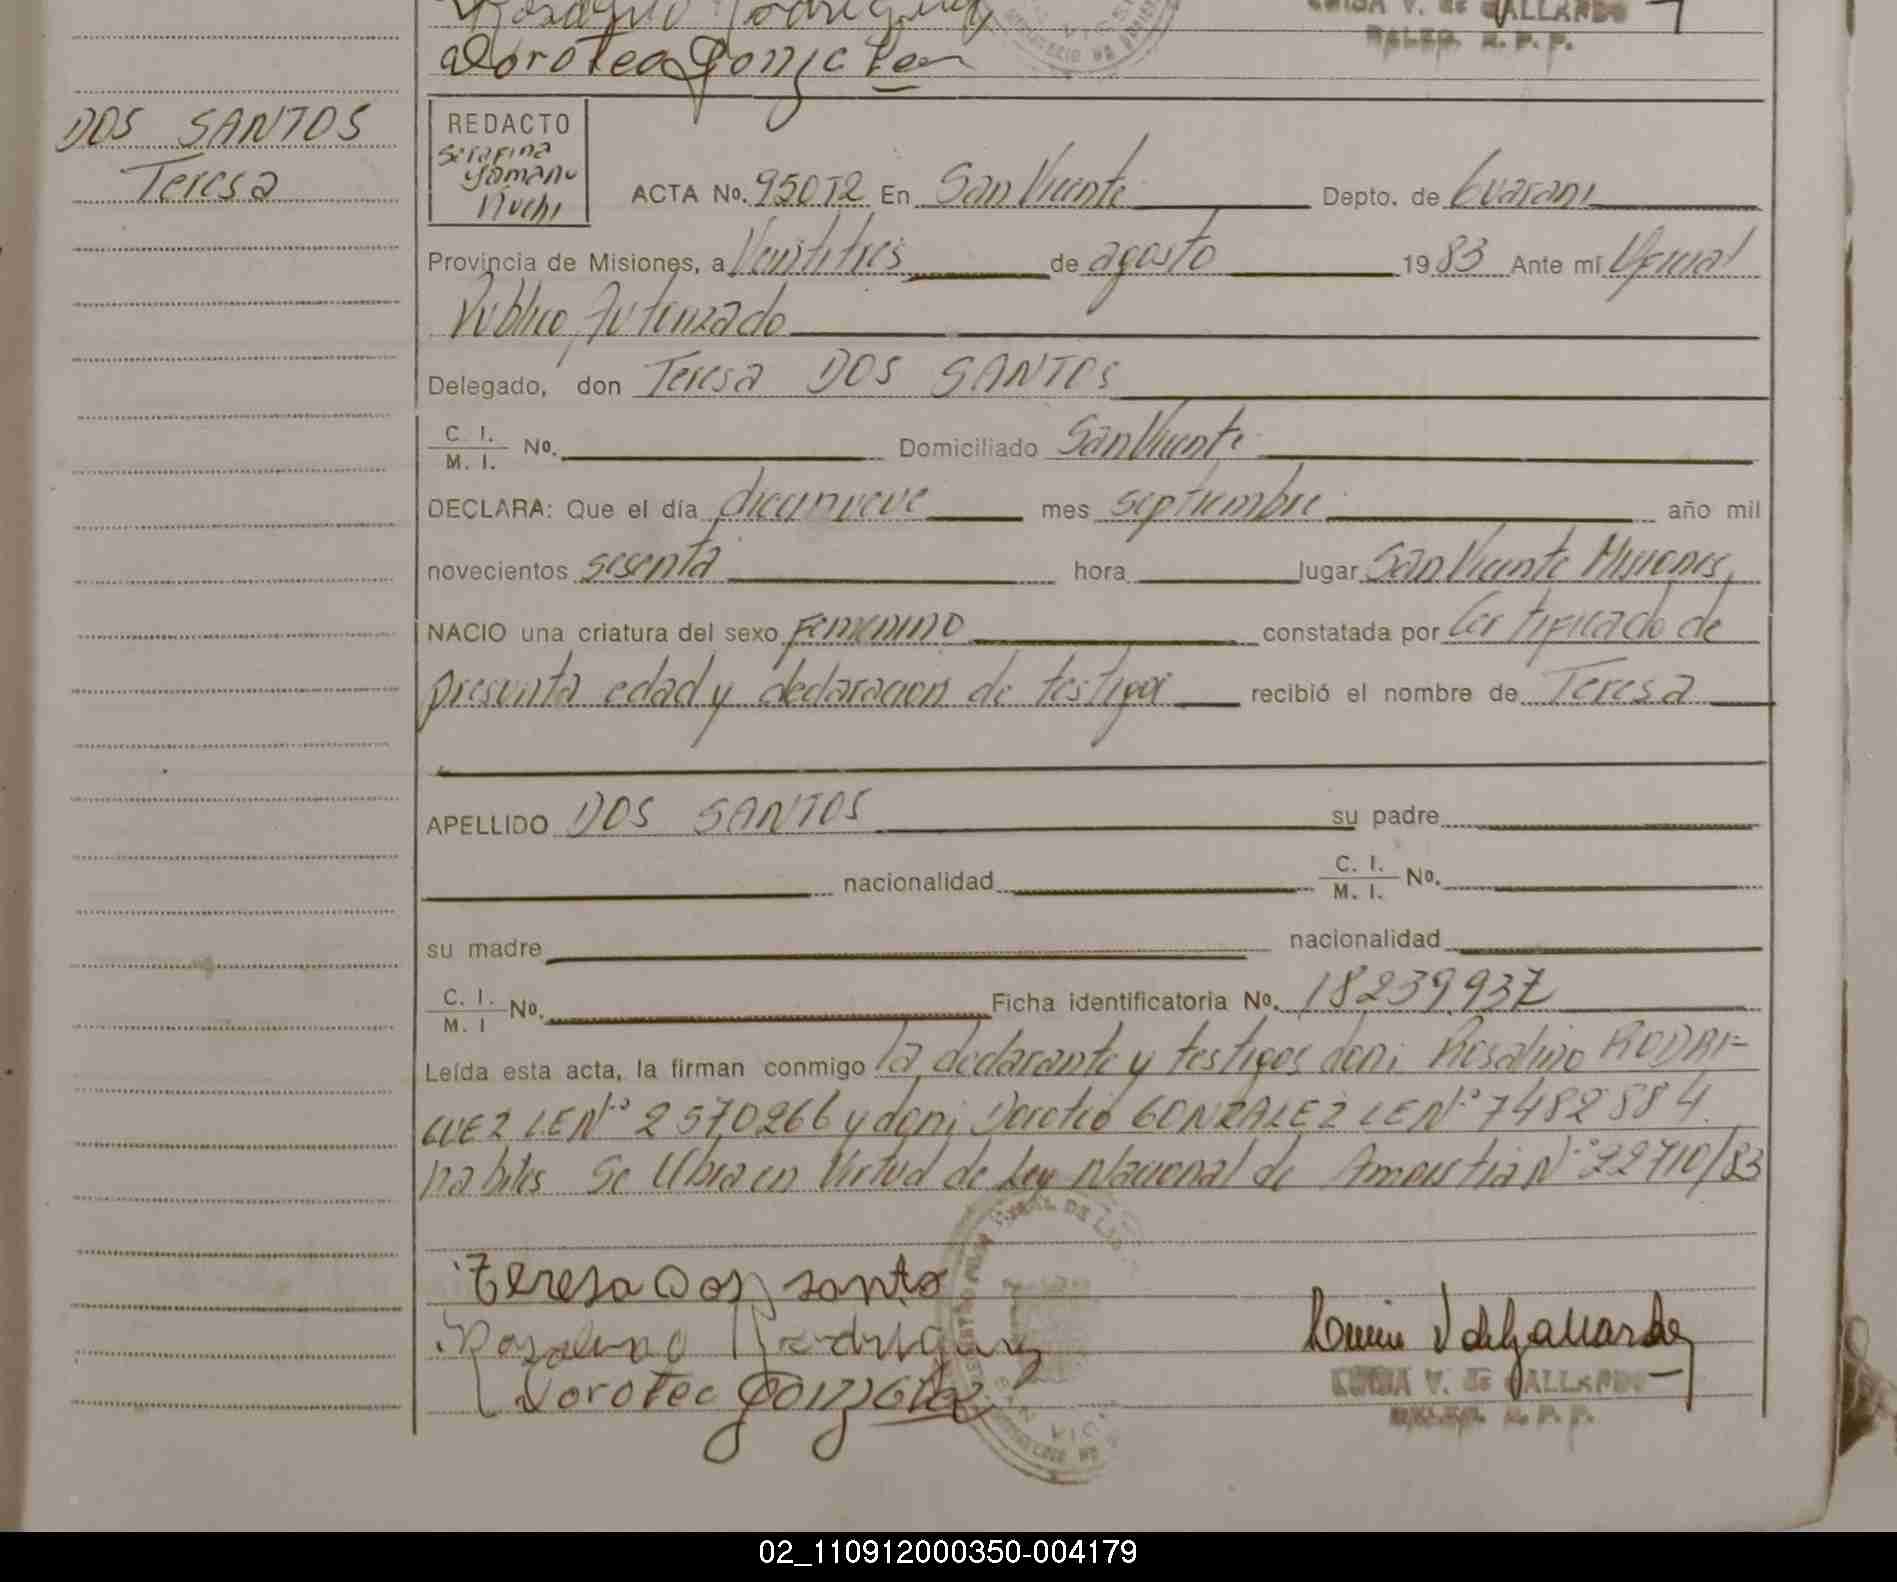 Dorotea Gonzalez
LUISA V. de GALLARDO
DALEG. R. P. P.
DOS SANTOS
Teresa
REDACTO
Serafina
ACTA No. 950T2 En San Vicente Depto. de Guarani
Provincia de Misiones, a Veintitres de agosto 1983 Ante mí Oficial
Publico Autorizado
Delegado, don Teresa DOS SANTOS
C. I. / M. I. No. Domiciliado San Vicente
DECLARA: Que el día diecinueve mes septiembre año mil
novecientos sesenta hora lugar San Vicente Misiones,
NACIO una criatura del sexo femenino constatada por Certificado de
presunta edad y declaracion de testigos recibió el nombre de Teresa
APELLIDO DOS SANTOS su padre
nacionalidad C. I. / M. I. No.
su madre nacionalidad
C. I. / M. I No. Ficha identificatoria No. 18239937
Leída esta acta, la firman conmigo la declarante y testigos don: Rosalino RODRI-
GUEZ LE Nº 2570266 y don: Doroteo GONZALEZ LE Nº 7482884
habiles Se Labra en Virtud de Ley Nacional de Amnistia Nº 22710/83
Teresa Dos santo
Rosalino Rodriguez
Doroteo Gonzalez
LUISA V. de GALLARDO
DALEG. R. P. P.
02_110912000350-004179